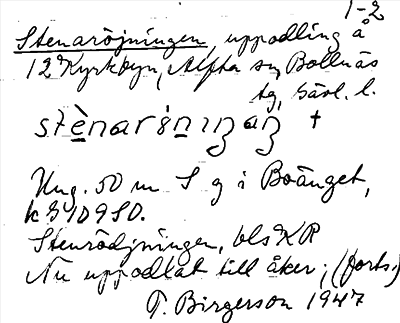 1-2
Stenaröjningen, uppodling å
12 Kyrkbyn, Alfta sn, Bollnäs
tg, Gävl. l.
Ung. 50 m S g i Boänget,
Stenrödjningen, bls KP
Nu uppodlat till åker; (forts.)
T. Birgerson 1947